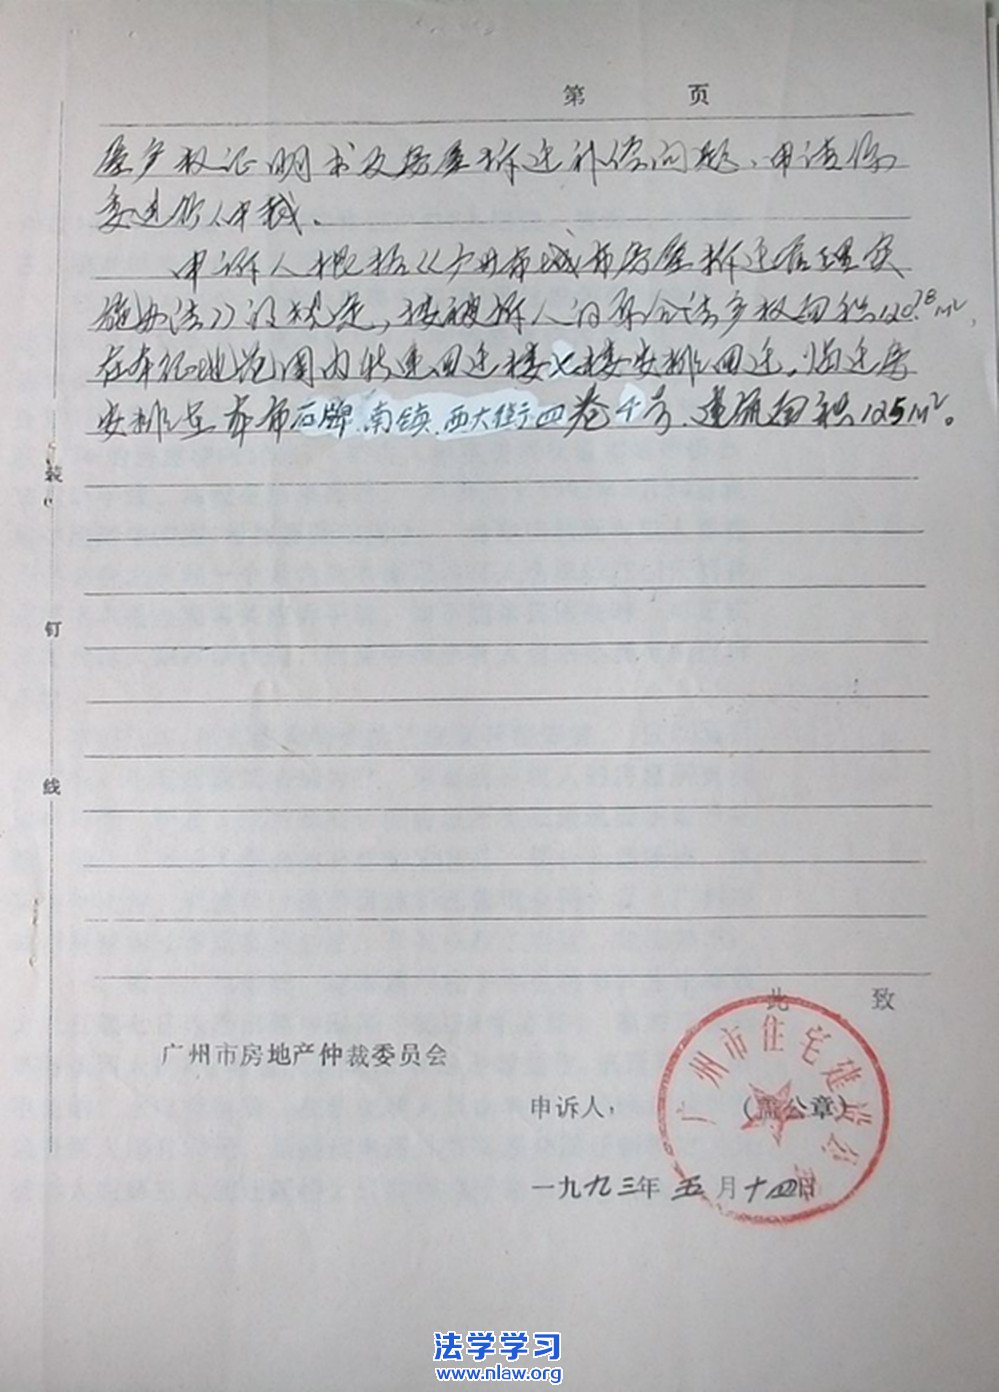 第 页
屋产权证明书及房屋拆迁补偿问题,申请你
委进行仲裁。
申诉人根据《广州市城市房屋拆迁管理实
施办法》的规定,按被拆人的原合法产权面积120.78m²,
在本征地范围内新建回迁楼 楼安排回迁,临迁房
安排在本市石牌.南镇.西大街四巷 号.建筑面积125m²。
装
钉
线
此 致
广州市房地产仲裁委员会
申诉人: (盖公章)
广州市住宅建设公司
一九九三年五月十四日
法学学习
www.nlaw.org